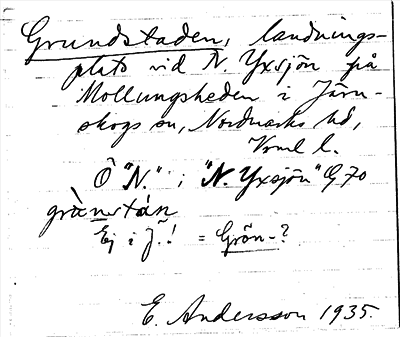 Grundstaden, landnings-
plats vid N. Yxsjön på
Mollungsheden i Järn-
skogs sn, Nordmarks hd,
Vrml l.
Ö "N." i "N. Yxsjön" G 70
grànstán
Ej i J.! = Grön-?
E. Andersson 1935.